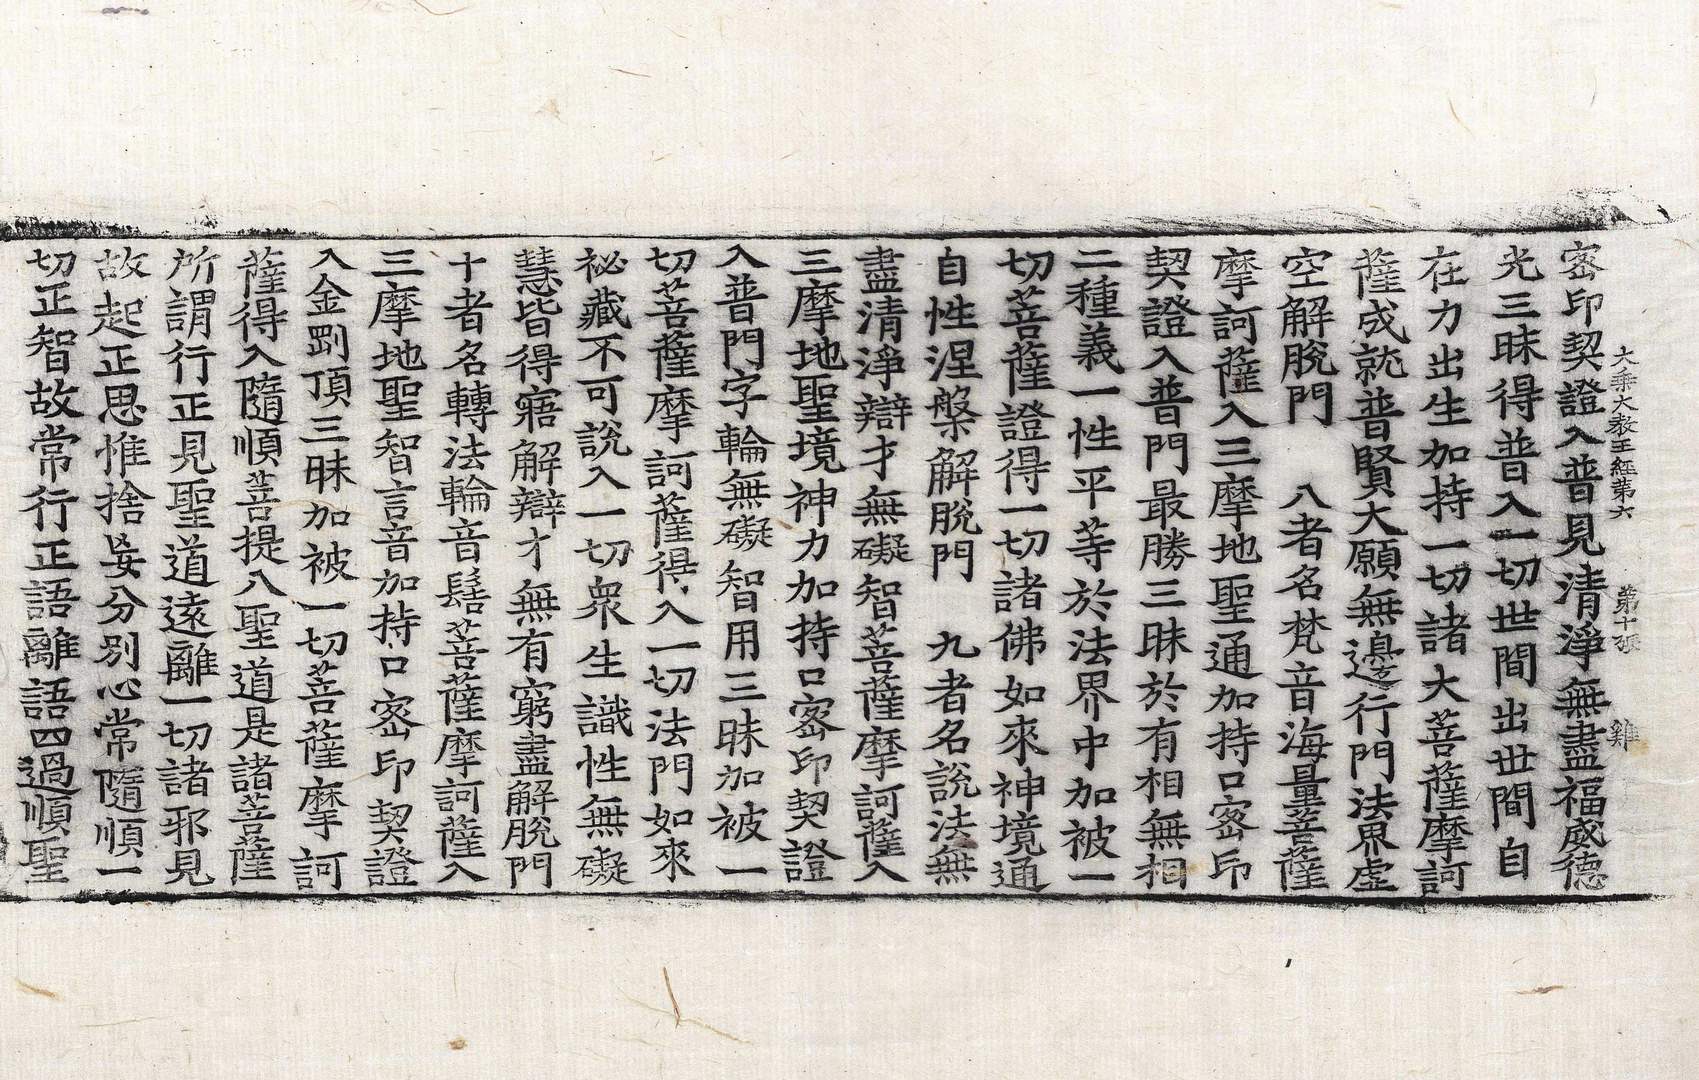 大乘大教王經第六 第十張 雞
密印契證入普見清淨無盡福威德
光三昧得普入一切世間出世間自
在力出生加持一切諸大菩薩摩訶
薩成就普賢大願無邊行門法界虛
空解脫門 八者名梵音海量菩薩
摩訶薩入三摩地聖通加持口密印
契證入普門最勝三昧於有相無相
二種義一性平等於法界中加被一
切菩薩證得一切諸佛如來神境通
自性涅槃解脫門 九者名說法無
盡清淨辯才無礙智菩薩摩訶薩入
三摩地聖境神力加持口密印契證
入普門字輪無礙智用三昧加被一
切菩薩摩訶薩得入一切法門如來
祕藏不可說入一切衆生識性無礙
慧皆得寤解辯才無有窮盡解脫門
十者名轉法輪音髻菩薩摩訶薩入
三摩地聖智言音加持口密印契證
入金剛頂三昧加被一切菩薩摩訶
薩得入隨順菩提八聖道是諸菩薩
所謂行正見聖道遠離一切諸邪見
故起正思惟捨妄分別心常隨順一
切正智故常行正語離語四過順聖